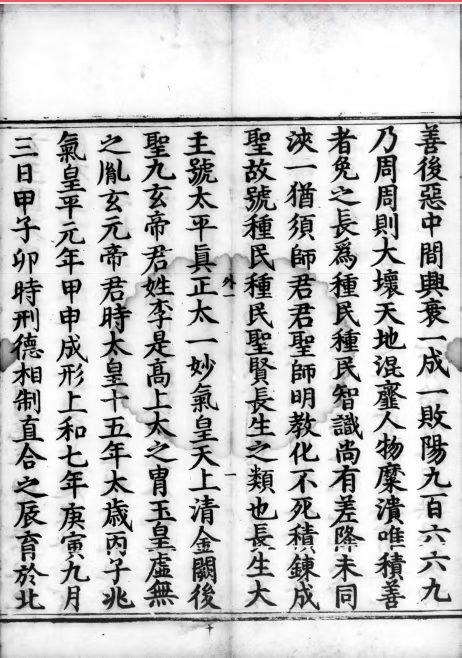 善後惡中間興衰一成一敗陽九百六六九
乃周周則大壞天地混齏人物糜潰唯積善
者免之長爲種民種民智識尚有差降未同
浹一猶須師君君聖師明教化不死積鍊成
聖故號種民種民聖賢長生之類也長生大
主號太平真正太一妙氣皇天上清金闕後
聖九玄帝君姓李是高上太之冑玉皇虛無
之胤玄元帝君時太皇十五年太歲丙子兆
氣皇平元年甲申成形上和七年庚寅九月
三日甲子卯時刑德相制直合之辰育於北
外一
一